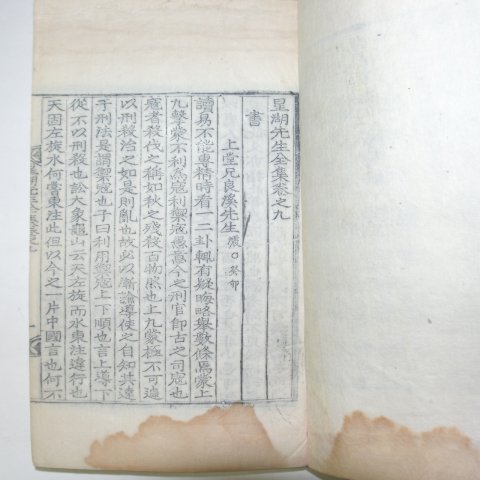 星湖先生全集卷之九
書
上堂兄良溪先生 癸卯
讀易不能專精時看一二卦輒有疑晦略擧數條焉蒙上
九擊蒙不利爲寇利禦寇愚意今之刑官卽古之司寇也
寇者殺伐之稱如秋之殘殺百物然也上九蒙極不可遽
以刑殺治之如是則亂也故必以漸讜導使之自知其違
于刑法是謂禦寇也子曰利用禦寇上下順也言上導下
從不以刑殺也訟大象龜山云天左旋而水東注違行也
天固左旋水何嘗東注此但以今之一片中國言也何不